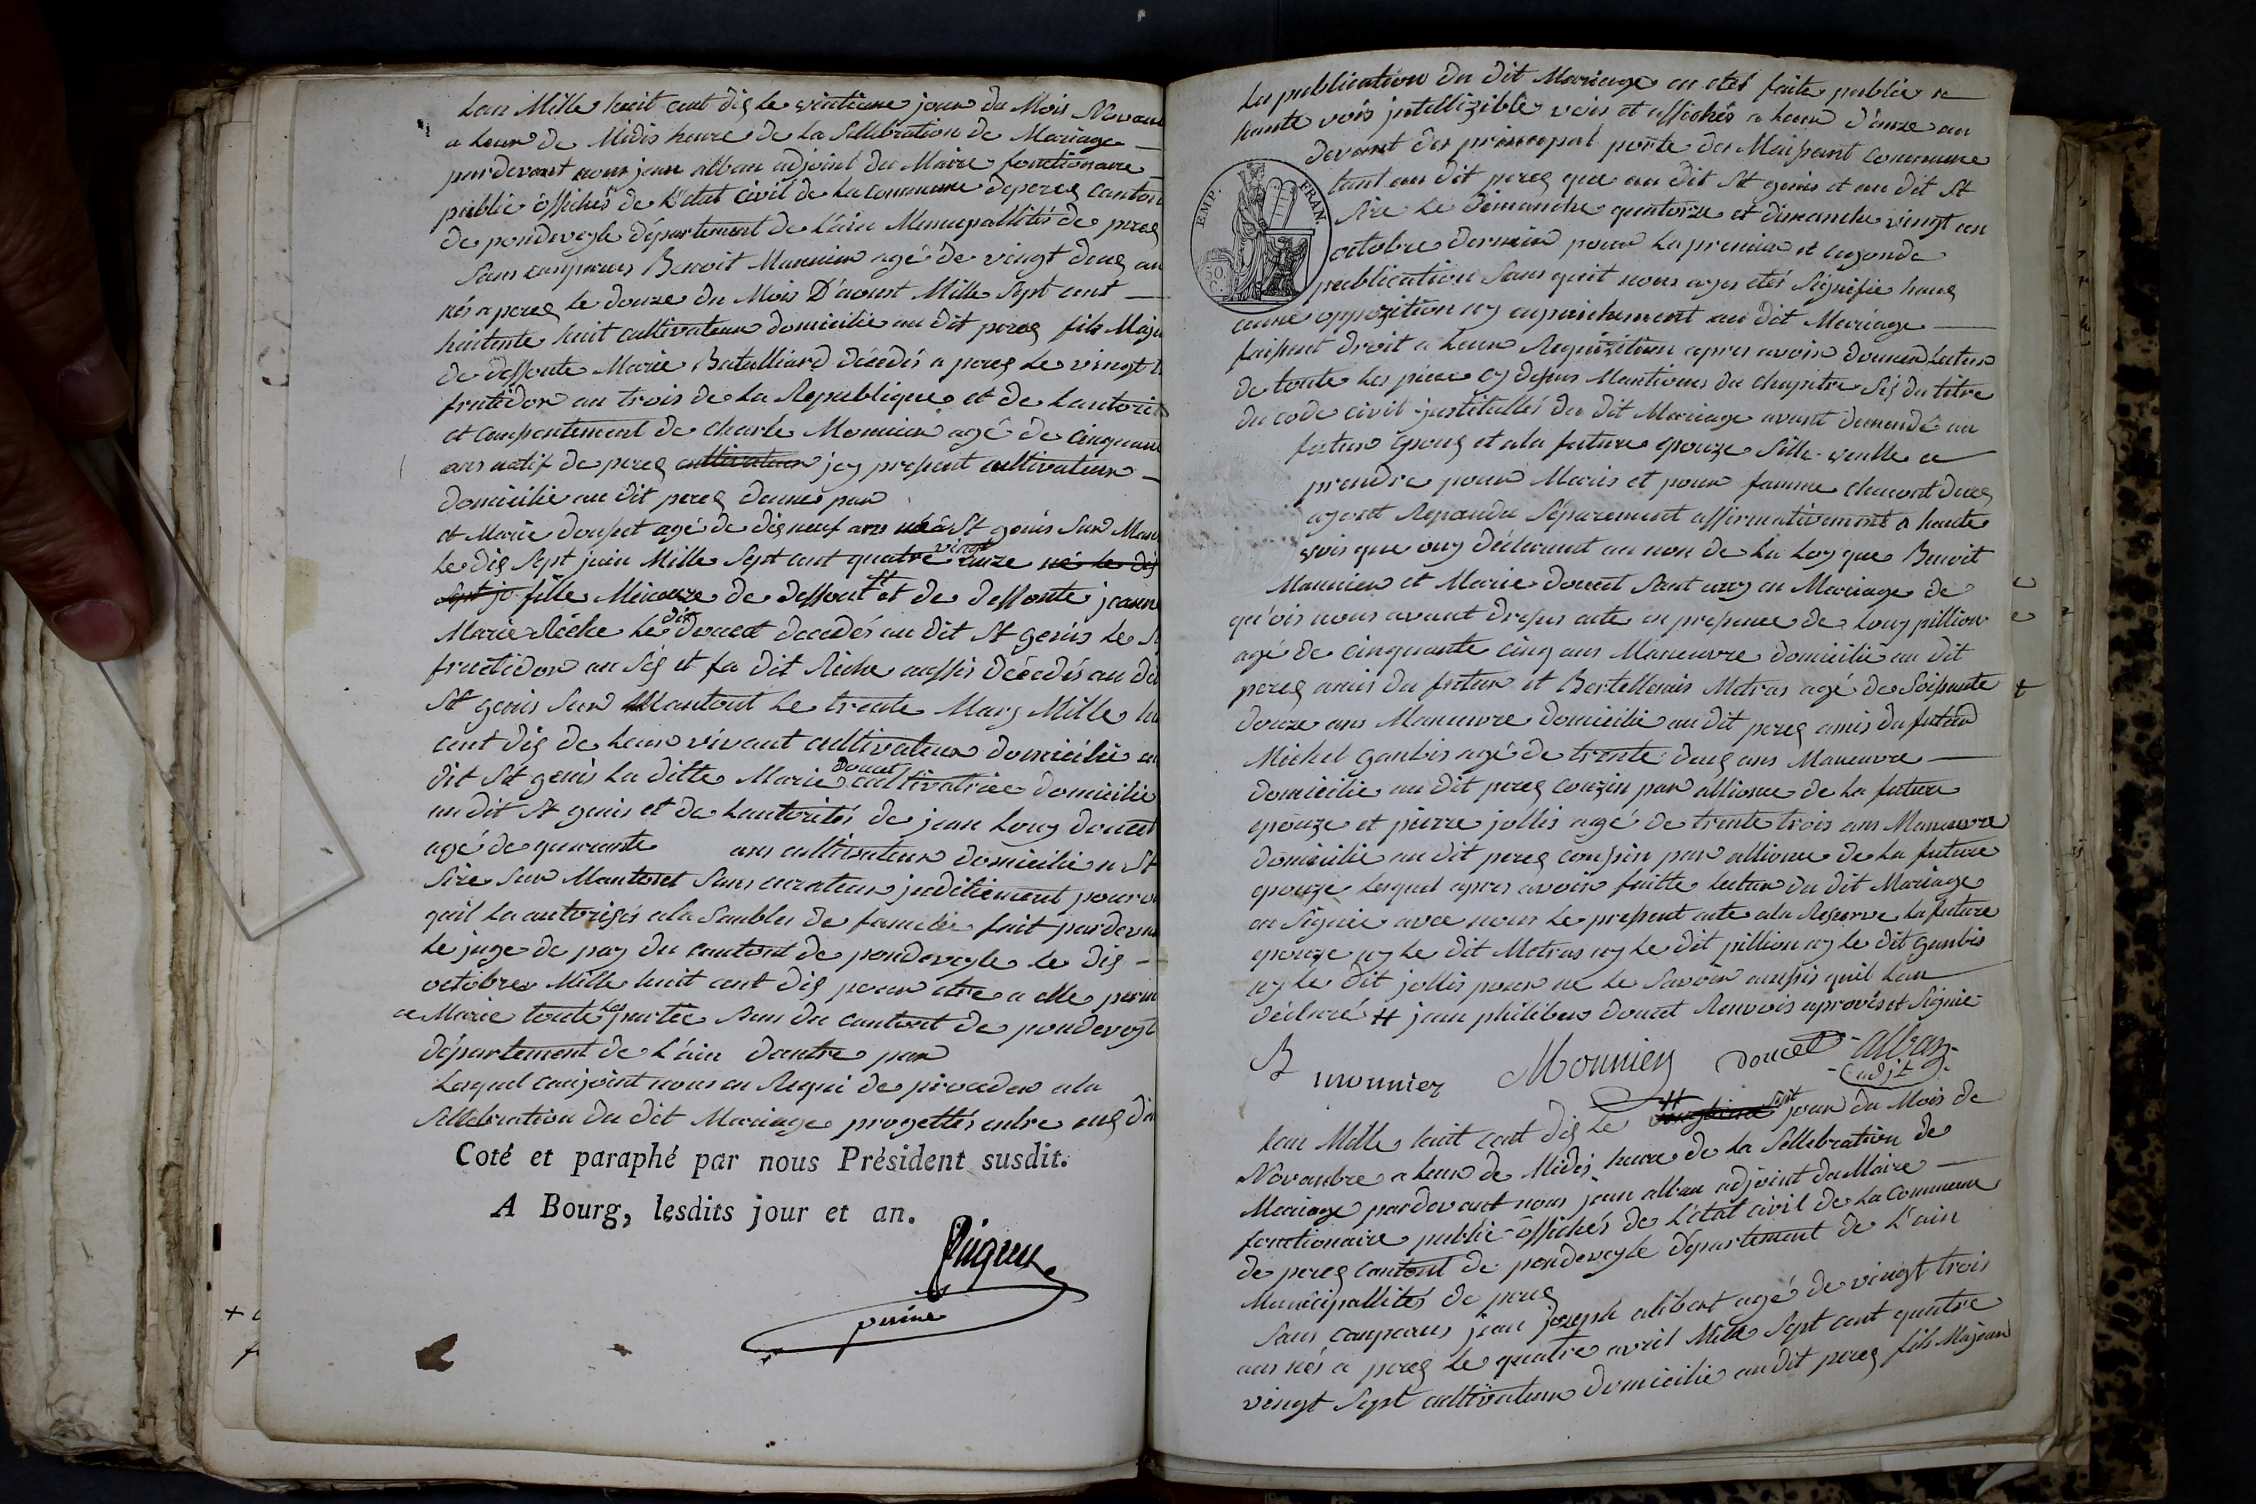 Lan Mille huit cent dis le vintieme jour du Mois Novam
a heur de Midis heure de la Sellebration de Mariage
pardevant nous jean alban adjoint du Maire fonctionaire
public offichés de l'état civil de la commune deperes canton
de pondeveyle département de l'ain Municipallités de peres
Sans comparus Benoit Mounier agé de vingt deus an
nés a peres le douze du Mois D'aoust Mille Sept cent
huitente huit cultivateur domicilié au dit peres fils Maju
de deffunte Marie Batalliard décédés a peres le vingt
frutidor an trois de la Republique et de Lautorit
et consentement de charle Mounier agé de cinquant
ans natif de peres cultivateur jcy present cultivateur
domicilié au dit peres dune par
et Marie douset agé de disneuf ans né a St genis Sur Man
le dis Sept juin Mille Sept cent quatre vingt onze né le dis
Sept ju fille Mineure de deffunt # et de deffunte jeanne
Marie Riche le dit doucet decedés au dit St genis le
fructidor an sis et la dit Riche aussis décedés au dit
St genis Sur Mantont le trente Mars Mille hu
cent dis de leur vivant cultivateur domicilié au
dit St genis la ditte Marie doucet cultivatrice domicilié
au dit St genis et de Lautorités de jean Louy doucet
agé de quarante ans cultivateur domicilié a St
Sire Sur Mantont Sans curateur juditiement pourv
quil la autorisés ala Sanblée de famille fait pardevan
Le juge de pay du cantont de pondeveyle le dis
octobre Mille huit cent dis pour etre a elle perm
ce Marie toute les partie Sans du cantont de pondeveyl
département de L'ain dautre par
Lesquel conjoint nous on Requi de proceder ala
Sellebration du dit Mariage progettés entre eus don
Coté et paraphé par nous Président susdit.
A Bourg, lesdits jour et an.
La publication du dit Mariage on étés faite public a
haute vois jntellizible veus et affichés a heur d'onze au
devant des principal porte des Maisont commune
EMP. FRAN.
50 C.
tant au dit peres que au dit St genis et au dit St
Sire le Dimanche quatorze et dimanche vingt un
octobre dernier pour la premier et cegonde
publication Sans quit nous ayes étés Signifie haus
cune oppozition ny anpeichement au dit Mariage
faisent droit a leur Requizition apres avoir donner lectur
de toute les piece cy desus Mantionés du chapitre sis du titre
du code civit jnstitullés du dit Mariage avont demandé au
futur epous et ala future epouze Sille veulle ce
prendre pour Maris et pour famme chacunt deus
ayont Repondu Séparement affirmativement a haute
vois que ouy déclaront au non de la Loy que Benoit
Mounier et Marie doucet Sont uny en Mariage de
qu'ois nous avont dresus acte en presence de Louy pillion
agé de cinquante cinq ans Maneuvre domicilié au dit
peres amis du futur et Bertellemis Metras agé de Soisante
douze ans Maneuvre domicilié au dit peres amis du futur
Michel gonbis agé de trente deus ans Maneuvre
domicilié au dit peres couzin par allience de la future
epouze et pierre jollis agé de trente trois ans Maneuvre
domicilié au dit peres couzin par allience de la future
epouze Lesquel apres avoir faitte lectur du dit Mariage
on Signie avec nous le present acte ala Reserve la future
epouze ny le dit Metras ny le dit pillion ny le dit gonbis
ny le dit jollis pour ne le Savoir ainsis quil lon
déclaré # jean philibert doucet Renvois aprové et Signie
B mounier Mounier doucet alban
adjt
Lan Mille huit cent dis le # Sept jour du Mois de
Novanbre a heur de Midis heure de la Sellebration de
Mariage pardevant nous jean alban adjoint du Maire
fonctionaire public offichés de L'état civil de la Commune
de peres cantont de pondeveyle département de L'ain
Municipallités de peres
Sans comparus jean joseph alibert agé de vingt trois
ans nés a peres le quatre avril Mille Sept cent quatre
vingt Sept cultivateur domicilié au dit peres fils Majeur